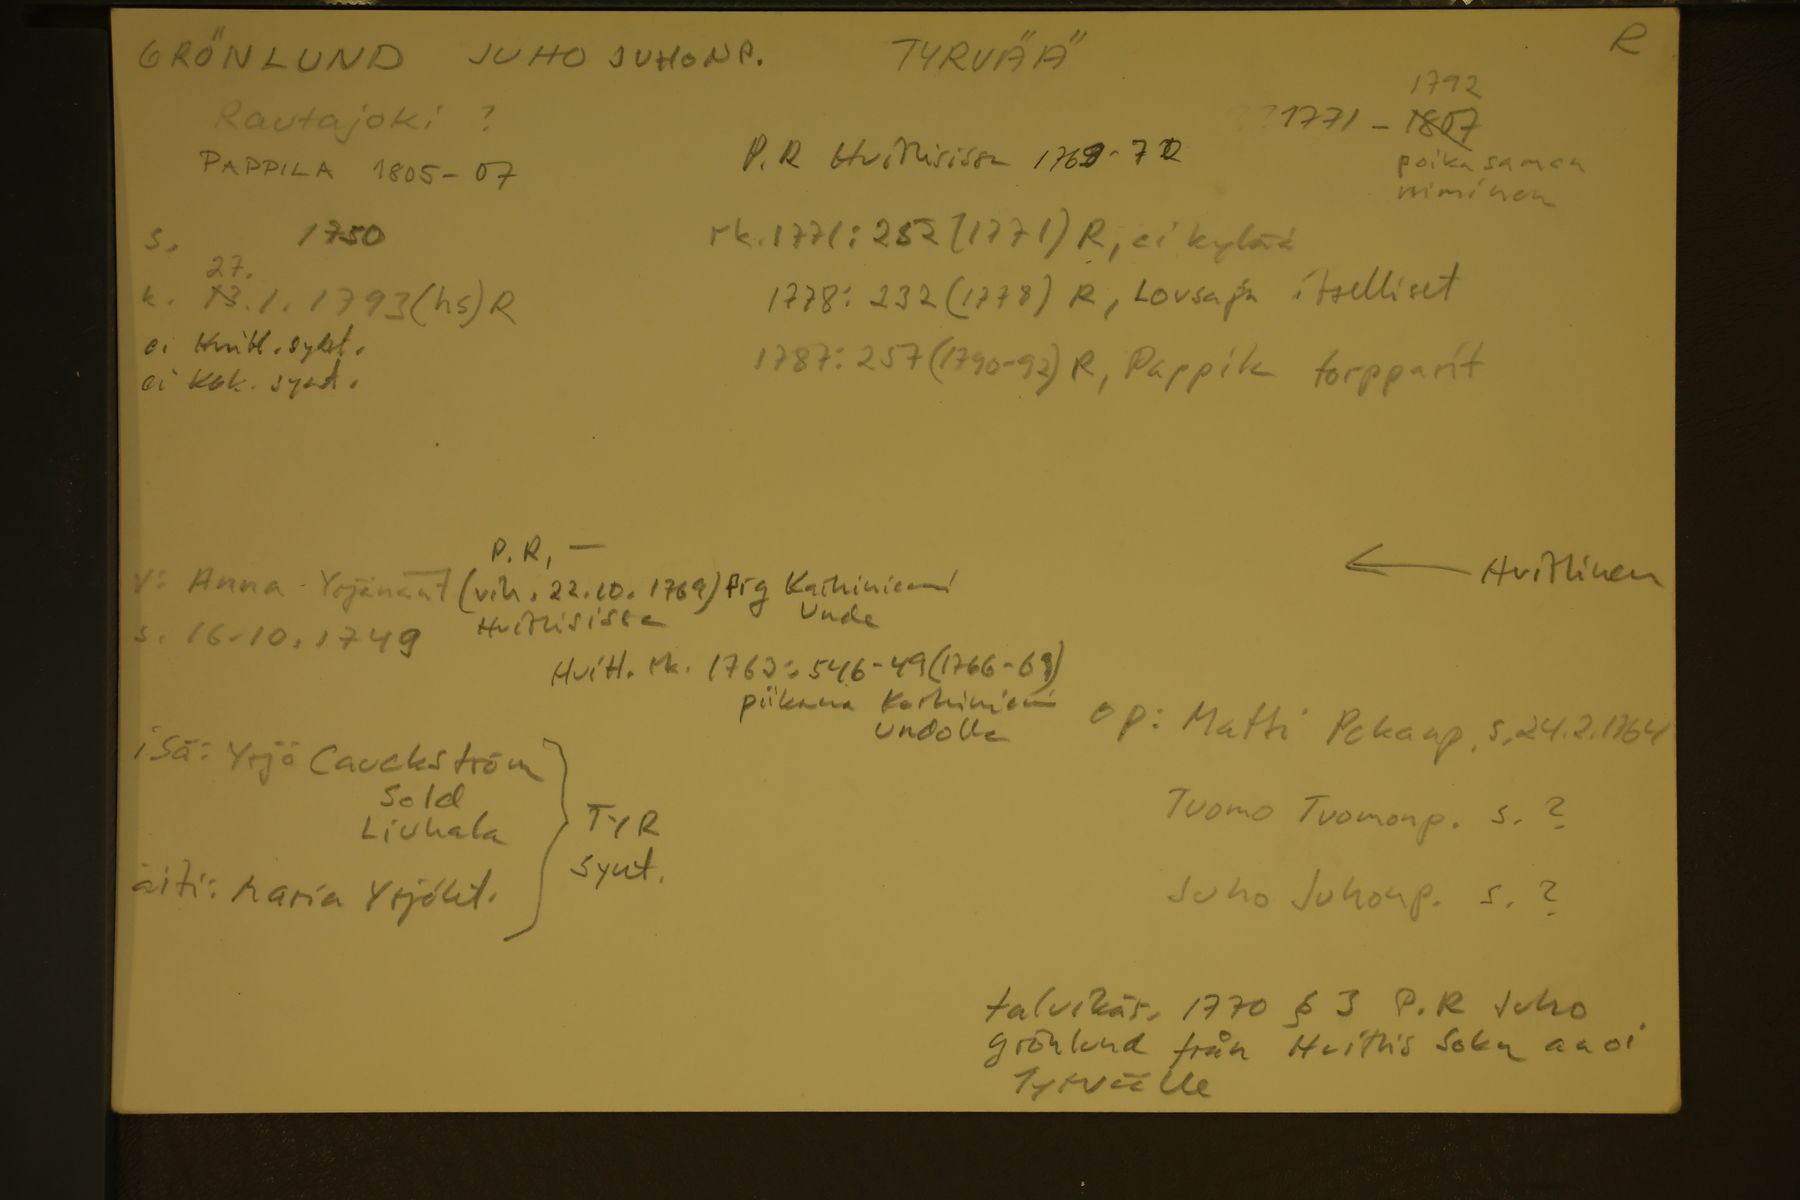 GRÖNLUND JUHO JUHONP. TYRVÄÄ R
Rautajoki ?
PAPPILA 1805-07
1792
1771 - 1807
poika saman
niminen
P.R Huittisissa 1769-72
s. 1750
27.
k. 13.1.1793 (hs) R
ei Huitt. synt.
ei Kok. synt.
rk. 1771: 252 (1771) R, ei kylää
1778: 232 (1778) R, itselliset
1787: 257 (1790-92) R, Pappila torpparit
P.R, —
v: Anna Yrjänänt (vih. 22.10.1769) Pig Kaihiniemi
Huittisissa Unde
s. 16.10.1749
← Huittinen
Huitt. rk. 1763: 546-49 (1766-69)
piikana Kaihiniemi
Undolla
isä: Yrjö Cauckström
Sold
Liuhala
äiti: Maria Yrjönt.
TYR
synt.
op: Matti Pekanp. s. 24.2.1764
Tuomo Tuomonp. s. ?
Juho Juhonp. s. ?
talvikär. 1770 § 3 P.R Juho
Grönlund från Huittis Sokn anoi
Tyrväälle